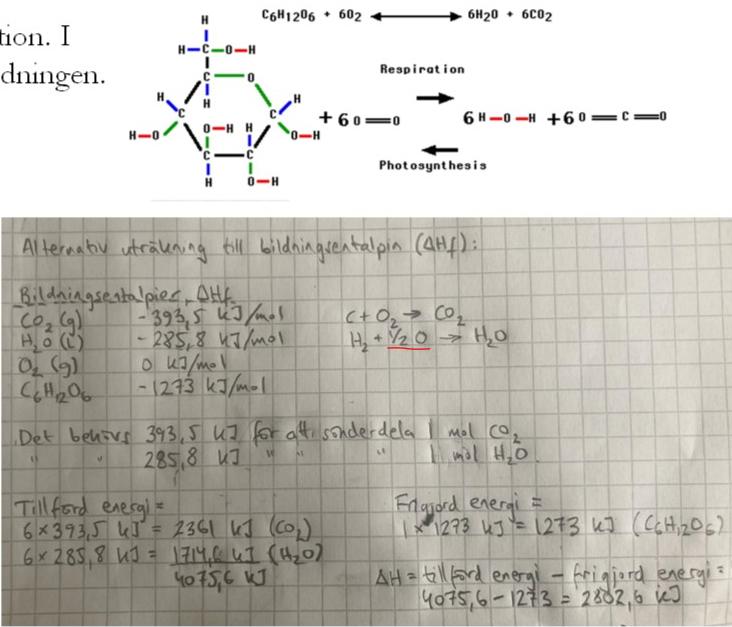 tion. I
dningen.
C6H12O6 + 6O2 ⟷ 6H2O + 6CO2
H
H—C—O—H
C—O
H
H
H
C
C
H—O
O—H
H
O—H
C—C
H
O—H
+ 6 O=O
Respiration
Photosynthesis
6 H—O—H + 6 O=C=O
Alternativ uträkning till bildningsentalpin (ΔHf):
Bildningsentalpier, ΔHf
CO2 (g) -393,5 kJ/mol C + O2 → CO2
H2O (l) -285,8 kJ/mol H2 + 1/2 O → H2O
O2 (g) 0 kJ/mol
C6H12O6 -1273 kJ/mol
Det behövs 393,5 kJ för att sönderdela 1 mol CO2
" " 285,8 kJ " " " 1 mol H2O.
Tillförd energi =
6 × 393,5 kJ = 2361 kJ (CO2)
6 × 285,8 kJ = 1714,6 kJ (H2O)
4075,6 kJ
Frigjord energi =
1 × 1273 kJ = 1273 kJ (C6H12O6)
ΔH = tillförd energi - frigjord energi =
4075,6 - 1273 = 2802,6 kJ